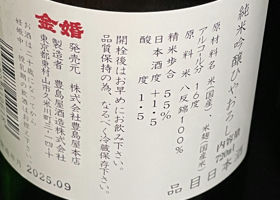 純米吟醸ひやおろし
原材料名 米(国産)、米麹(国産米)
アルコール分 16度
原料米 八反錦100%
精米歩合 55%
日本酒度 +1.5
酸度 1.5
内容量 720ml
品目 日本酒
開栓後はお早めにお飲み下さい。
品質保持の為、なるべく冷蔵保存下さい。
金婚
発売元 株式会社豊島屋本店
製造者 豊島屋酒造株式会社
東京都東村山市久米川町三-一四-十
お酒は二十歳になってから。
2025.09